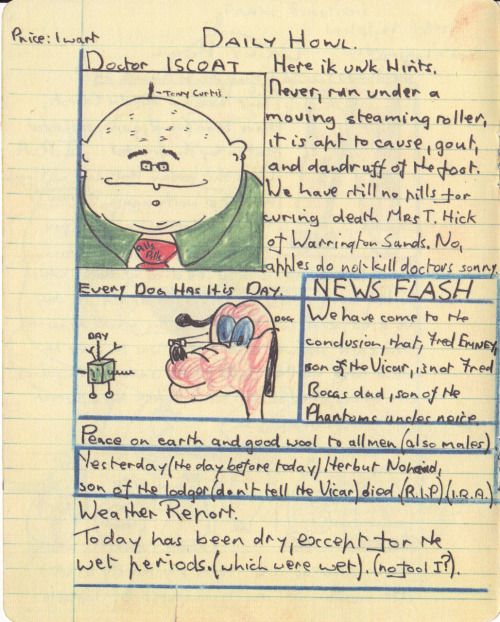 Price: 1 wart
DAILY HOWL.
Doctor ISCOAT
TONY CURTIS.
Pills
Here ik unk Hints.
Never, run under a
moving steaming roller,
it is apt to cause, gout,
and dandruff of the foot.
We have still no pills for
curing death Mrs T. Hick
of Warrington Sands. No,
apples do not kill doctors sonny.
EVERY DOG HAS IT IS DAY.
DAY
DOG
NEWS FLASH
We have come to the
conclusion, that, Fred EMNEY,
son of the Vicar, is not Fred
Boccas dad, son of the
Phantoms uncles neice.
Peace on earth and good wool to all men (also males)
Yesterday (the day before today) Herbut
son of the lodger (don't tell the Vicar) died. (R.I.P) (I.R.A.)
Weather Report.
Today has been dry, except for the
wet periods. (which were wet). (no fool I?).